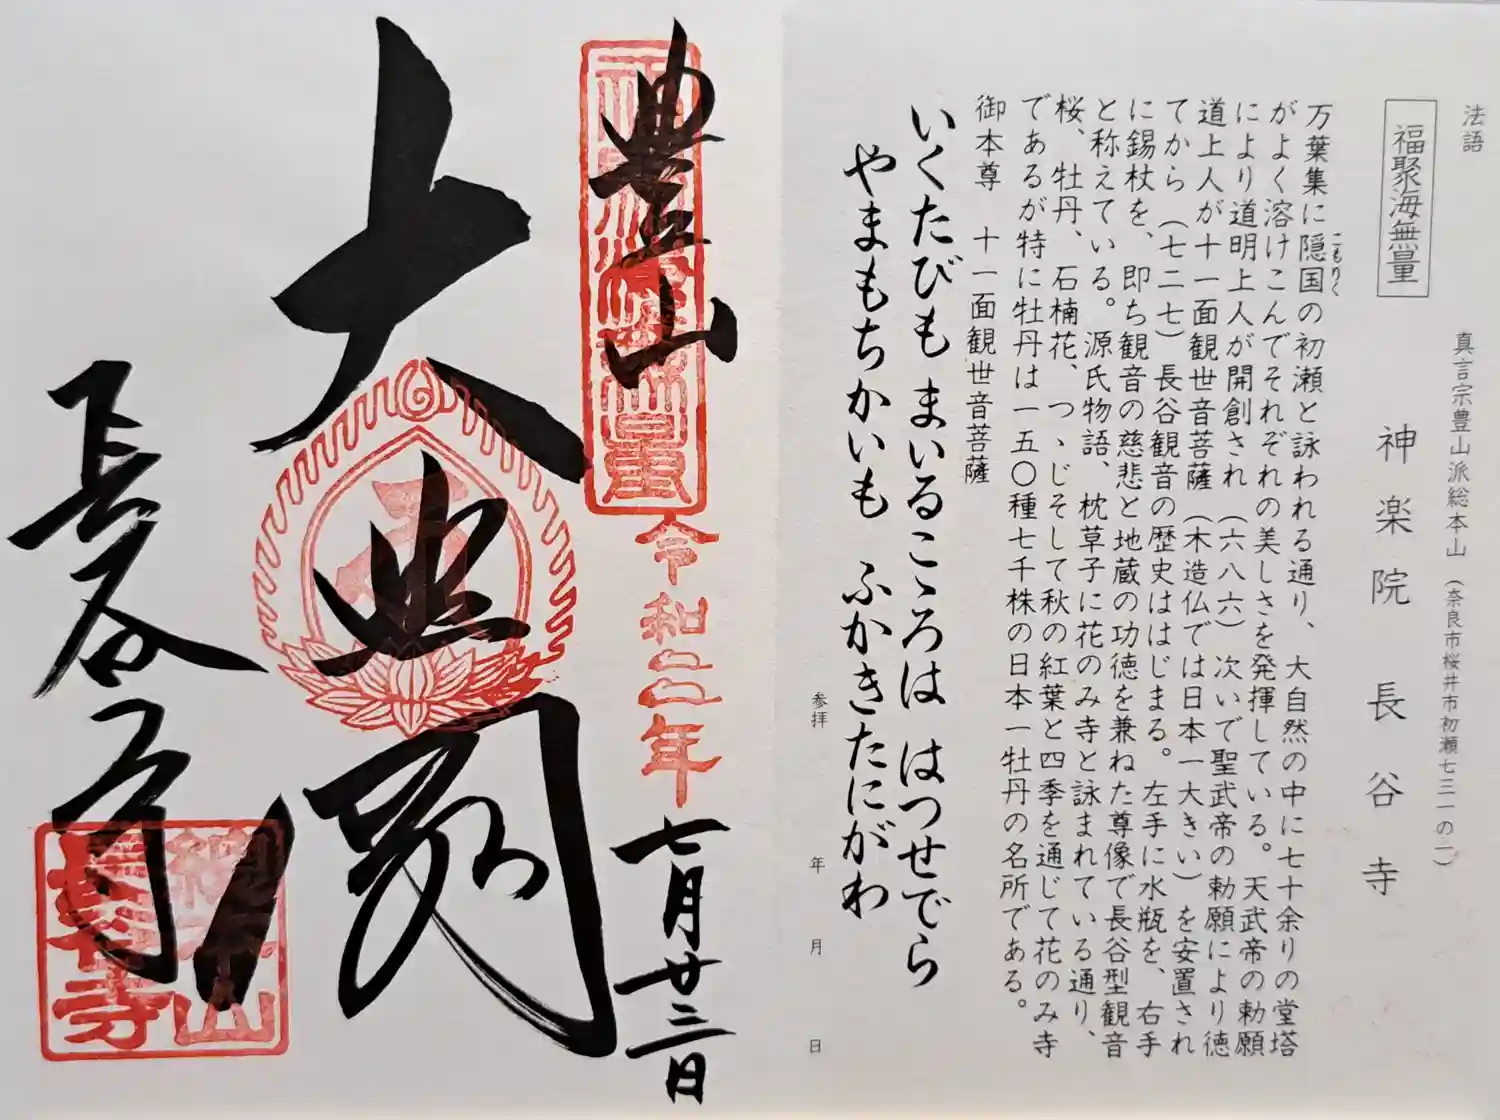 法語
福聚海無量
真言宗豊山派総本山（奈良市桜井市初瀬七三一の二）
神楽院 長谷寺
万葉集に隠国の初瀬と詠われる通り、大自然の中に七十余りの堂塔
こもりく
がよく溶けこんでそれぞれの美しさを発揮している。天武帝の勅願
により道明上人が開創され（六八六）次いで聖武帝の勅願により徳
道上人が十一面観世音菩薩（木造仏では日本一大きい）を安置され
てから（七二七）長谷観音の歴史ははじまる。左手に水瓶を、右手
に錫杖を、即ち観音の慈悲と地蔵の功徳を兼ねた尊像で長谷型観音
と称えている。源氏物語、枕草子に花のみ寺と詠まれている通り、
桜、牡丹、石楠花、つゝじそして秋の紅葉と四季を通じて花のみ寺
であるが特に牡丹は一五〇種七千株の日本一牡丹の名所である。
御本尊 十一面観世音菩薩
いくたびも まいるこゝろは はつせでら
やまもちかいも ふかきたにがわ
参拝 年 月 日
豊山
福聚海無量
令和二年七月廿三日
大悲閣
長谷寺
総本山
長谷寺